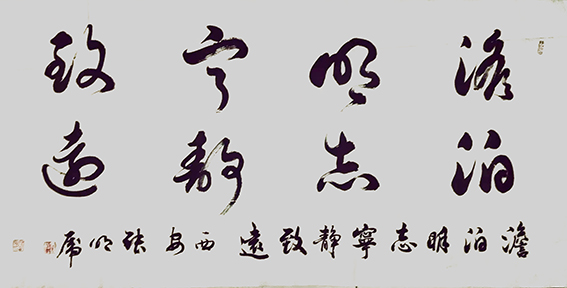 澹泊
明志
宁静
致遠
澹泊明志寧静致遠西安張明虎